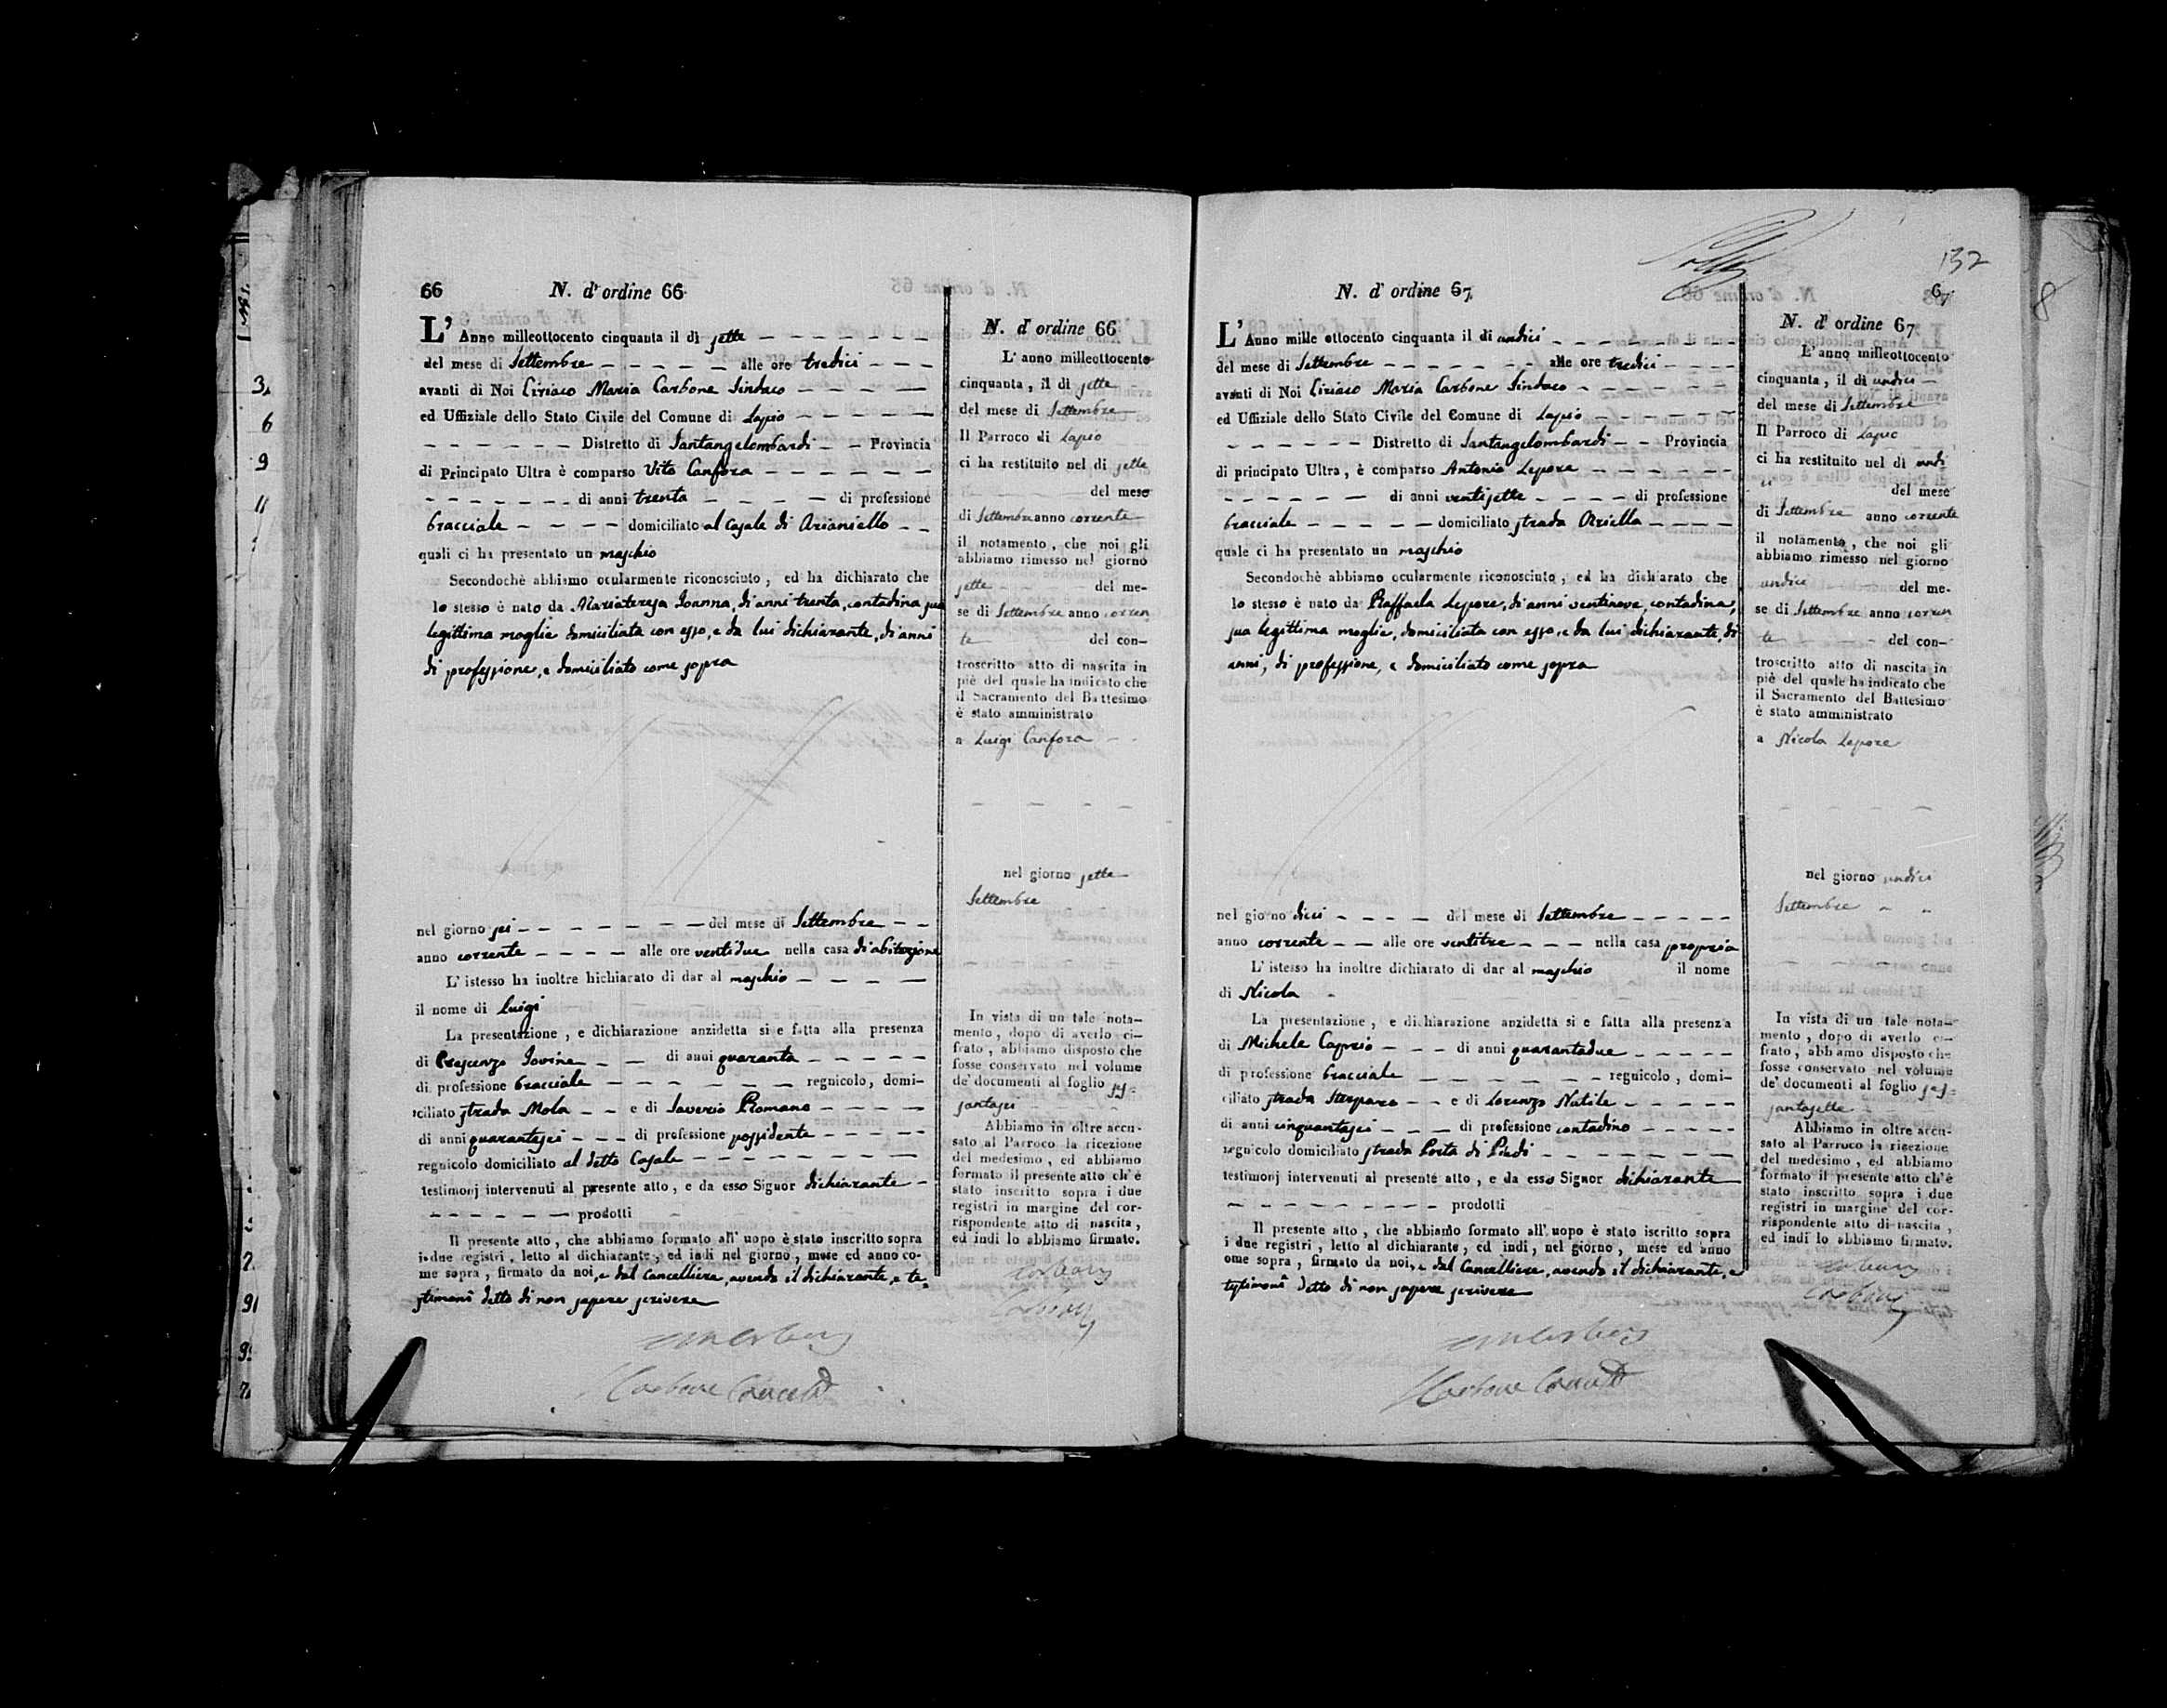 66
N. d' ordine 66
L' Anno milleottocento cinquanta il dì sette
del mese di Settembre alle ore tredici
avanti di Noi Ciriaco Maria Carbone Sindaco
ed Uffiziale dello Stato Civile del Comune di Lapio
Distretto di Santangelombardi Provincia
di Principato Ultra è comparso Vito Canfora
di anni trenta di professione
bracciale domiciliato al Casale di Arianiello
quali ci ha presentato un maschio
Secondochè abbiamo ocularmente riconosciuto, ed ha dichiarato che
lo stesso è nato da Mariateresa Ioanna, di anni trenta, contadina sua
legittima moglie domiciliata con esso, e da lui dichiarante, di anni
di professione, e domiciliato come sopra
nel giorno sei del mese di Settembre
anno corrente alle ore ventidue nella casa di abitazione
L' istesso ha inoltre hichiarato di dar al maschio
il nome di Luigi
La presentazione, e dichiarazione anzidetta si e fatta alla presenza
di Crescenzo Iovine di anni quaranta
di professione bracciale regnicolo, domi-
ciliato strada Mola e di Saverio Romano
di anni quarantasei di professione possidente
regnicolo domiciliato al detto Casale
testimonj intervenuti al presente atto, e da esso Signor dichiarante
prodotti
Il presente atto, che abbiamo formato all' uopo è stato inscritto sopra
i due registri, letto al dichiarante, ed indi nel giorno, mese ed anno co-
me sopra, firmato da noi, e dal Cancelliere, avendo il dichiarante, e te=
stimoni detto di non sapere scrivere
Carbone
N. d' ordine 66
L' anno milleottocento
cinquanta, il dì sette
del mese di Settembre
Il Parroco di Lapio
ci ha restituito nel dì sette
del mese
di Settembre anno corrente
il notamento, che noi gli
abbiamo rimesso nel giorno
sette del me-
se di Settembre anno corren
te del con-
troscritto atto di nascita in
piè del quale ha indicato che
il Sacramento del Battesimo
è stato amministrato
a Luigi Canfora
nel giorno sette
Settembre
In vista di un tale nota-
mento, dopo di averlo ci-
frato, abbiamo disposto che
fosse conservato nel volume
de' documenti al foglio ses=
santasei
Abbiamo in oltre accu-
sato al Parroco la ricezione
del medesimo, ed abbiamo
formato il presente atto ch'è
stato inscritto sopra i due
registri in margine del cor-
rispondente atto di nascita,
ed indi lo abbiamo firmato.
132
67
N. d' ordine 67
L' Anno mille ottocento cinquanta il di undici
del mese di Settembre alle ore tredici
avanti di Noi Ciriaco Maria Carbone Sindaco
ed Uffiziale dello Stato Civile del Comune di Lapio
Distretto di Santangelombardi Provincia
di principato Ultra, è comparso Antonio Lepore
di anni ventisette di professione
bracciale domiciliato strada Ariella
quale ci ha presentato un maschio
Secondochè abbiamo ocularmente riconosciuto, ed ha dichiarato che
lo stesso è nato da Raffaela Lepore, di anni ventinove, contadina,
sua legittima moglie, domiciliata con esso, e da lui dichiarante, di
anni, di professione, e domiciliato come sopra
nel giorno dieci del mese di Settembre
anno corrente alle ore ventitre nella casa propria
L' istesso ha inoltre dichiarato di dar al maschio il nome
di Nicola
La presentazione, e dichiarazione anzidetta si e fatta alla presenza
di Michele Caprio di anni quarantadue
di professione bracciale regnicolo, domi-
ciliato strada e di Lorenzo Nutile
di anni cinquantasei di professione contadino
regnicolo domiciliato strada Porta di Piedi
testimonj intervenuti al presente atto, e da esso Signor dichiarante
prodotti
Il presente atto, che abbiamo formato all' uopo è stato iscritto sopra
i due registri, letto al dichiarante, ed indi, nel giorno, mese ed anno
ome sopra, firmato da noi, e dal Cancelliere, avendo il dichiarante, e
testimoni detto di non sapere scrivere
Carbone
N. d' ordine 67
L' anno milleottocento
cinquanta, il dì undici
del mese di Settembre
Il Parroco di Lapio
ci ha restituito nel dì undi
ci del mese
di Settembre anno corrente
il notamento, che noi gli
abbiamo rimesso nel giorno
undici del me-
se di Settembre anno corren
te del con-
troscritto atto di nascita in
piè del quale ha indicato che
il Sacramento del Battesimo
è stato amministrato
a Nicola Lepore
nel giorno undici
Settembre
In vista di un tale nota-
mento, dopo di averlo ci-
frato, abbiamo disposto che
fosse conservato nel volume
de' documenti al foglio ses=
santasette
Abbiamo in oltre accu-
sato al Parroco la ricezione
del medesimo, ed abbiamo
formato il presente atto ch'è
stato inscritto sopra i due
registri in margine del cor-
rispondente atto di nascita,
ed indi lo abbiamo firmato.